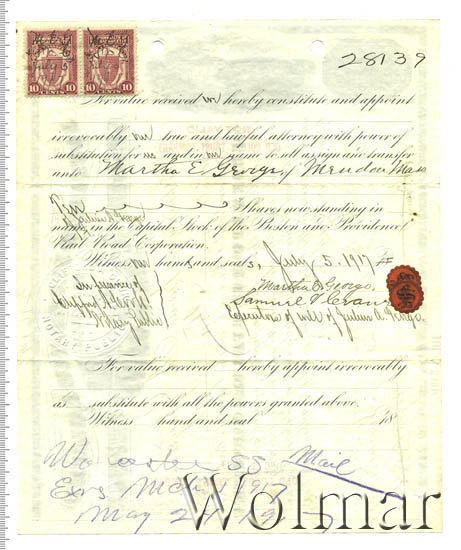 28139
10 CENTS 10
10 CENTS 10
For value received we hereby constitute and appoint
irrevocably our true and lawful attorney with power of
substitution for us and in our name to sell assign and transfer
unto Martha E. George, of Mendon Mass
Ten Shares now standing in
name in the Capital Stock of the Boston and Providence
Rail Road Corporation.
Witness our hands and seals, July 5. 1917
In presence of
Notary Public
Martha E. George,
Samuel
Executors of will of Julius A. George.
For value received hereby appoint irrevocably
as substitute with all the powers granted above.
Witness hand and seal 18
Worcester SS Mail
1917
May 2
Wolmar